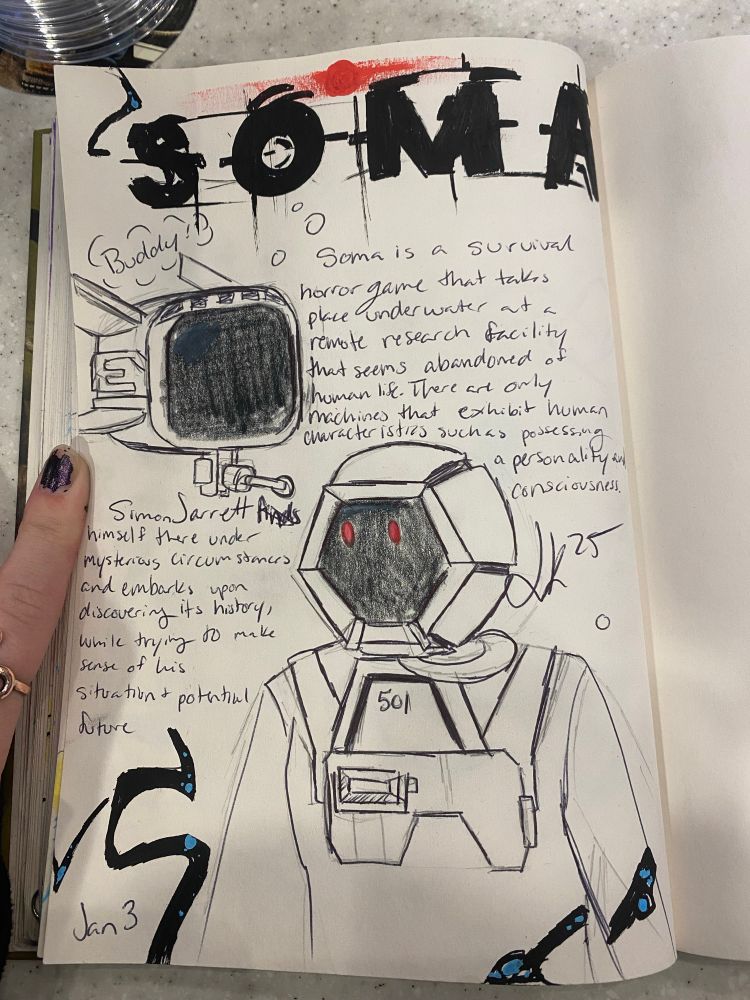 SOMA
Buddy!?
Soma is a survival
horror game that takes
place underwater at a
remote research facility
that seems abandoned of
human life. There are only
machines that exhibit human
characteristics such as possessing
a personality and
consciousness.
Simon Jarrett finds
himself there under
mysterious circumstances
and embarks upon
discovering its history,
while trying to make
sense of his
situation + potential
future
25
501
Jan 3